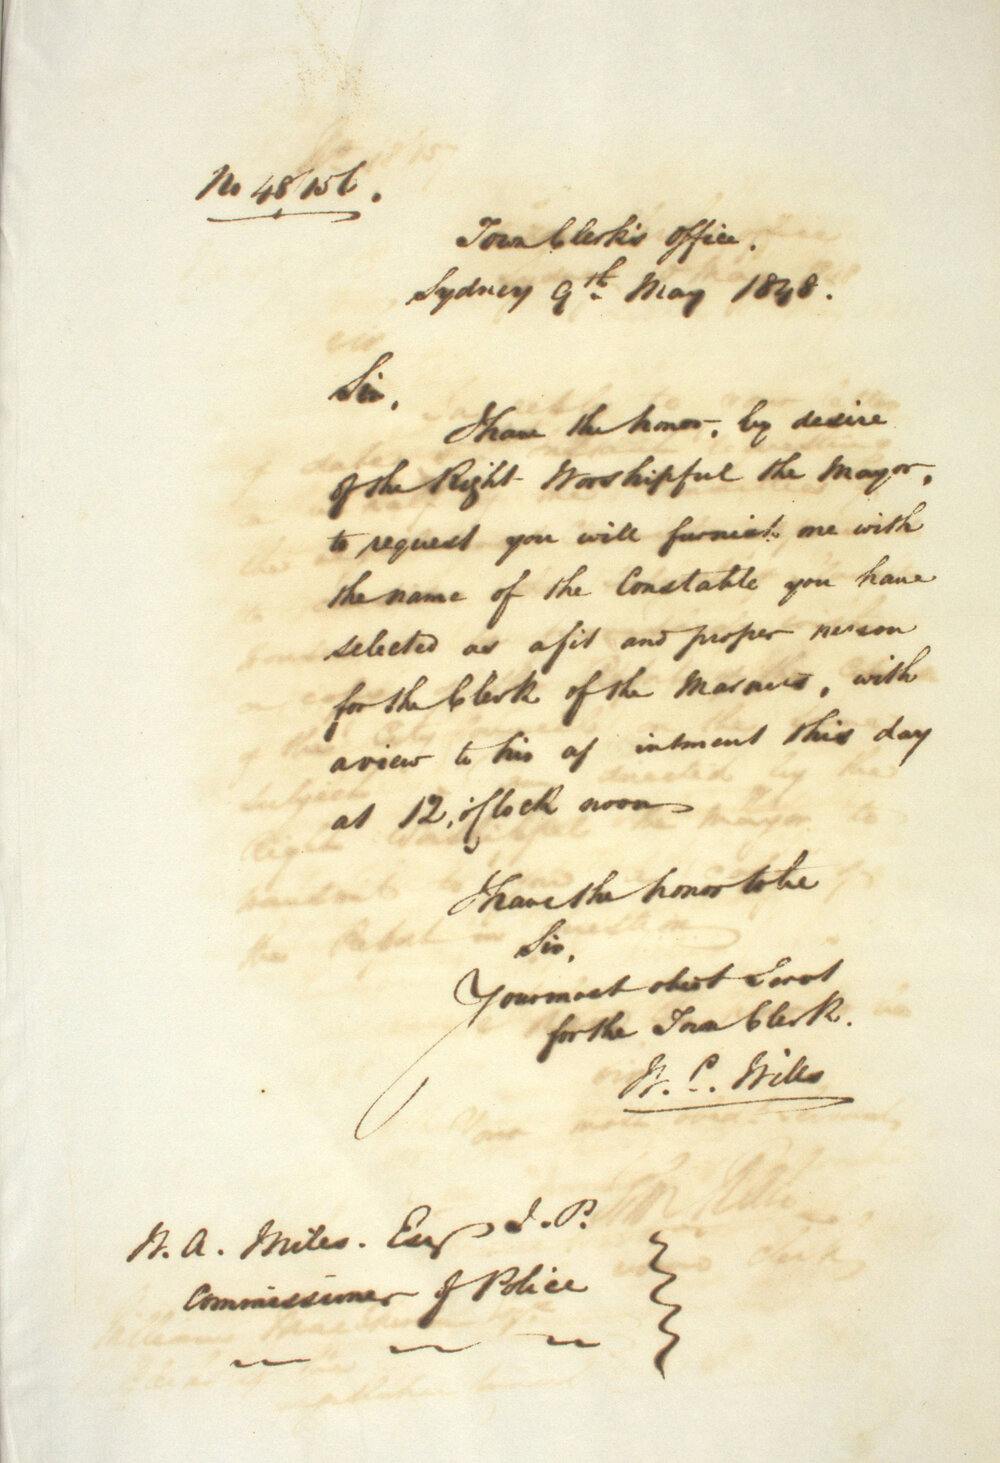 No 48/156.
Town Clerk's Office.
Sydney 9th May 1848.
Sir,
I have the honor, by desire
of the Right Worshipful the Mayor,
to request you will furnish me with
the name of the Constable you have
selected as a fit and proper person
for the Clerk of the Markets, with
a view to his ap intment this day
at 12, o'Clock noon
I have the honor to be
Sir,
Your most obedt Servt
for the Town Clerk.
W. C. Wills
W. A. Miles. Esqr J. P.
Commissioner of Police